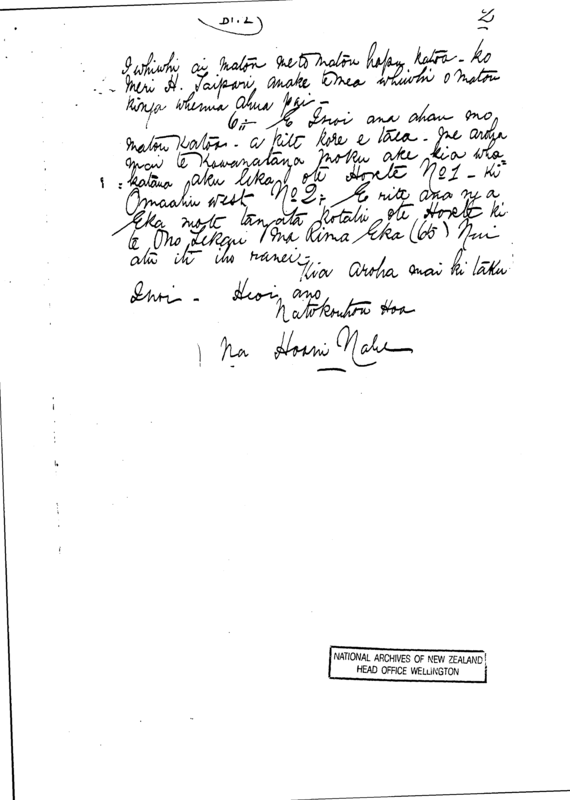 D1.L
2
I whiwhi ai matou me to matou hapu katoa - ko
Meri H. Taipari anake te mea whiwhi o matou
kinga whenua ahua pai -
6; E Inoi ana ahau mo
matou Katoa - a kite kore e taea - me aroha
mai te Kawanatanga moku ake kia wha
katana aku Eka ote Hoete No 1 - ki
Omaahu West No 2; E rite ana nga
Eka mote tangata kotahi ote Hoete ki
te Ono Tekau ma Rima Eka (65) Nui
atu iti iho ranei -
Kia Aroha mai ki taku
Inoi - Heoi ano
Natokoutou Hoa
Na Hoani Nahe
NATIONAL ARCHIVES OF NEW ZEALAND
HEAD OFFICE WELLINGTON